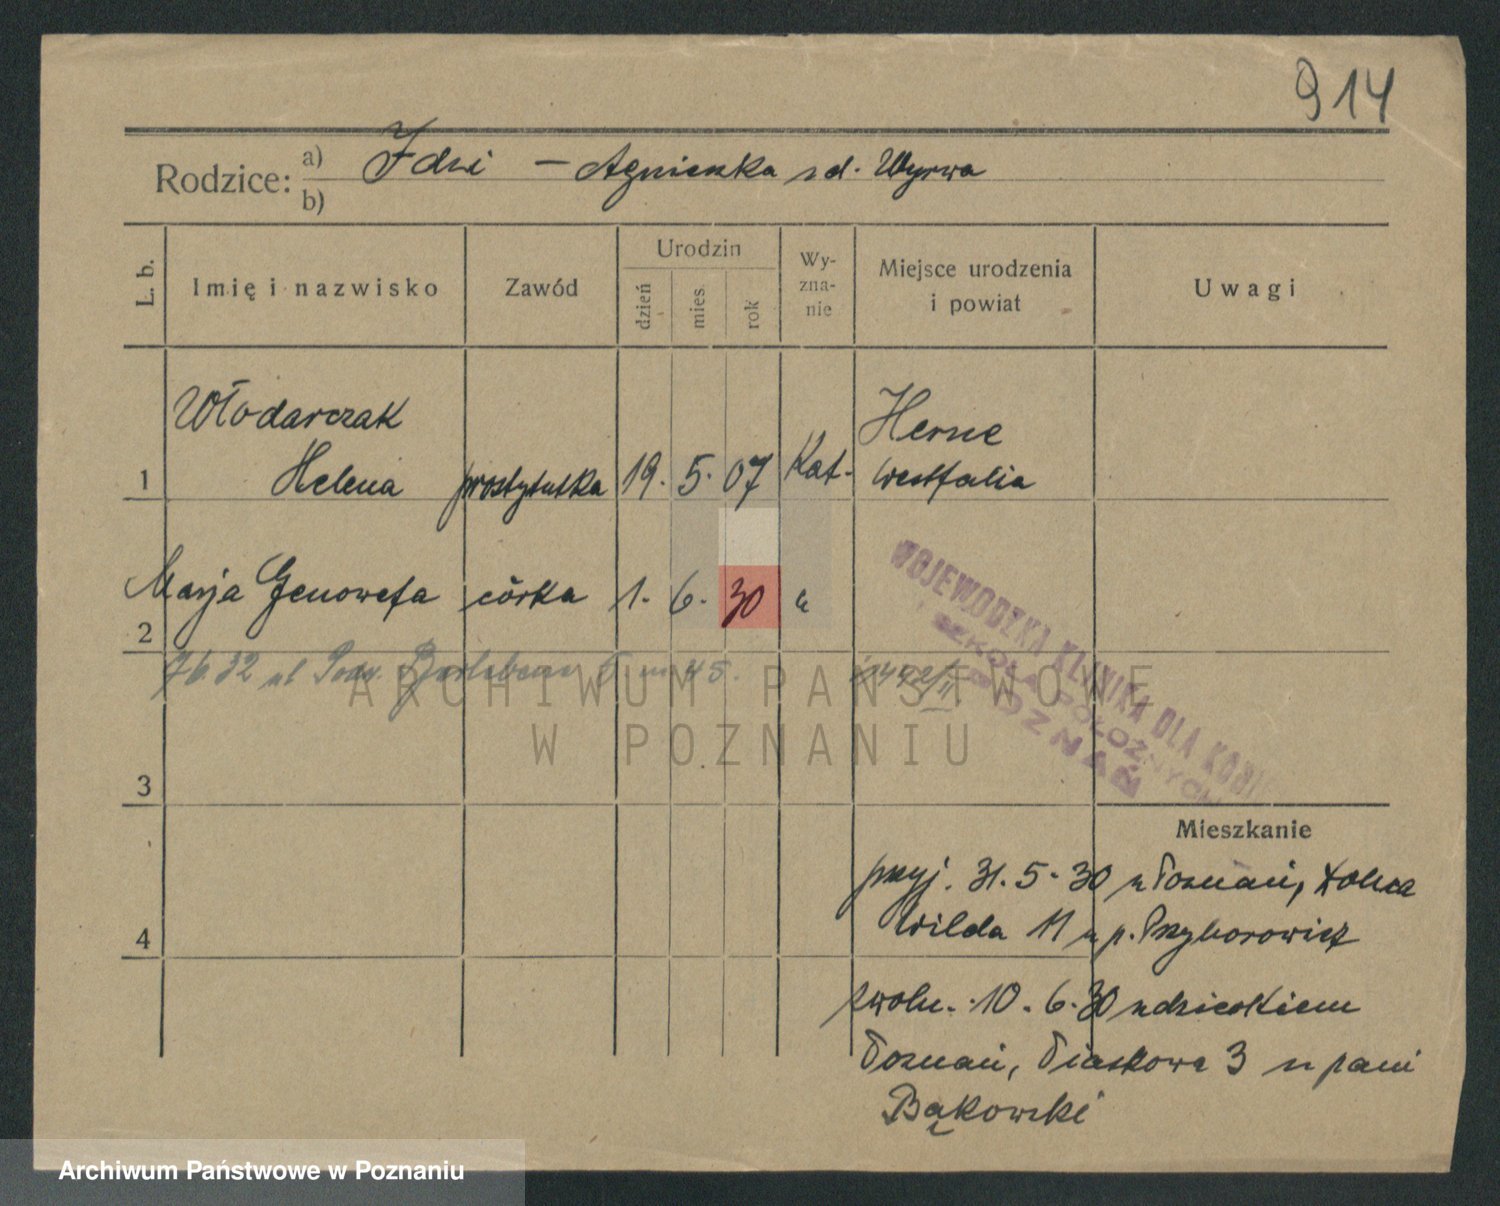 914
Rodzice: a) Idzi – Agnieszka z d. Wyrwa
b)
L. b. Imię i nazwisko Zawód Urodzin dzień mies. rok Wy-zna-nie Miejsce urodzenia i powiat Uwagi
Włodarczak Herne
1 Helena prostytutka 19. 5. 07 Kat. Westfalia
Marja Genowefa córka 1. 6. 30 "
2
WOJEWÓDZKA KLINIKA DLA KOBIET
I SZKOŁA POŁOŻNYCH
POZNAŃ
ARCHIWUM PAŃSTWOWE
W POZNANIU
3
Mieszkanie
przyj. 31. 5. 30 z Poznań, Dolna
4 Wilda 11 u p. Przyborowicz
zwoln. 10. 6. 30 z dzieckiem
Poznań, Piaskowa 3 u pani
Bąkowski
Archiwum Państwowe w Poznaniu